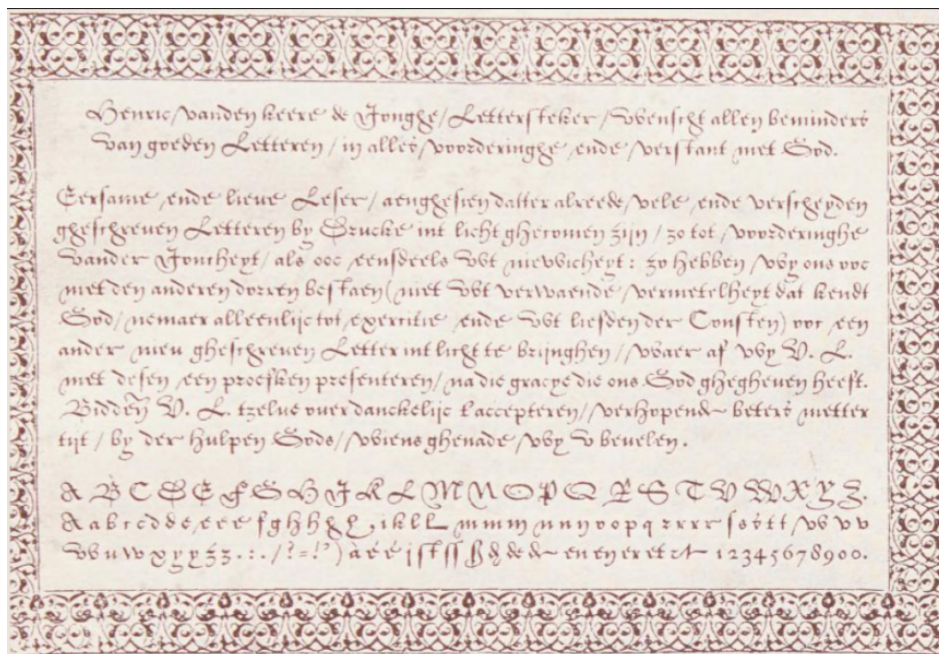 Henric/ vanden keere de Jonghe/ Lettersteker/ Wenscht allen beminders
van goeden Letteren/ in alles/ voorderinghe ende verstant met God.
Eersame ende lieve Leser/ aenghesien datter alreede vele ende verscheyden
gheschreven Letteren by Drucke int licht ghecomen zijn/ zo tot voorderinghe
vander Joncheyt/ als ooc eensdeels vvt nieuvvicheyt: zo hebben vvy ons ooc
met den anderen dorren bestaen (niet vvt vervvaende vermetelheyt dat kendt
God/ nemaer alleenlijc tot exercitie ende vvt liefden der Consten) ooc een
ander nieu gheschreven Letter int licht te brijnghen/ vvaer af vvy V. L.
met desen een proefken presenteren/ na die gracye die ons God ghegheven heeft.
Biddeñ V. L. tzelve over danckelijc t'accepteren/ verhopende beters metter
tijt/ by der hulpen Gods/ vviens ghenade vvy v bevelen.
A B C D E F G H J K L M N O P Q R S T V W X Y Z.
A a b c c d d e e e e f g h h g l i k l L m m m n n n o o p q r r r r s o s t t v v v v
vv u w x y y z z . : . / ? = ! ' ) a e e j st ss d d d d en en er et 1 2 3 4 5 6 7 8 9 0 0.